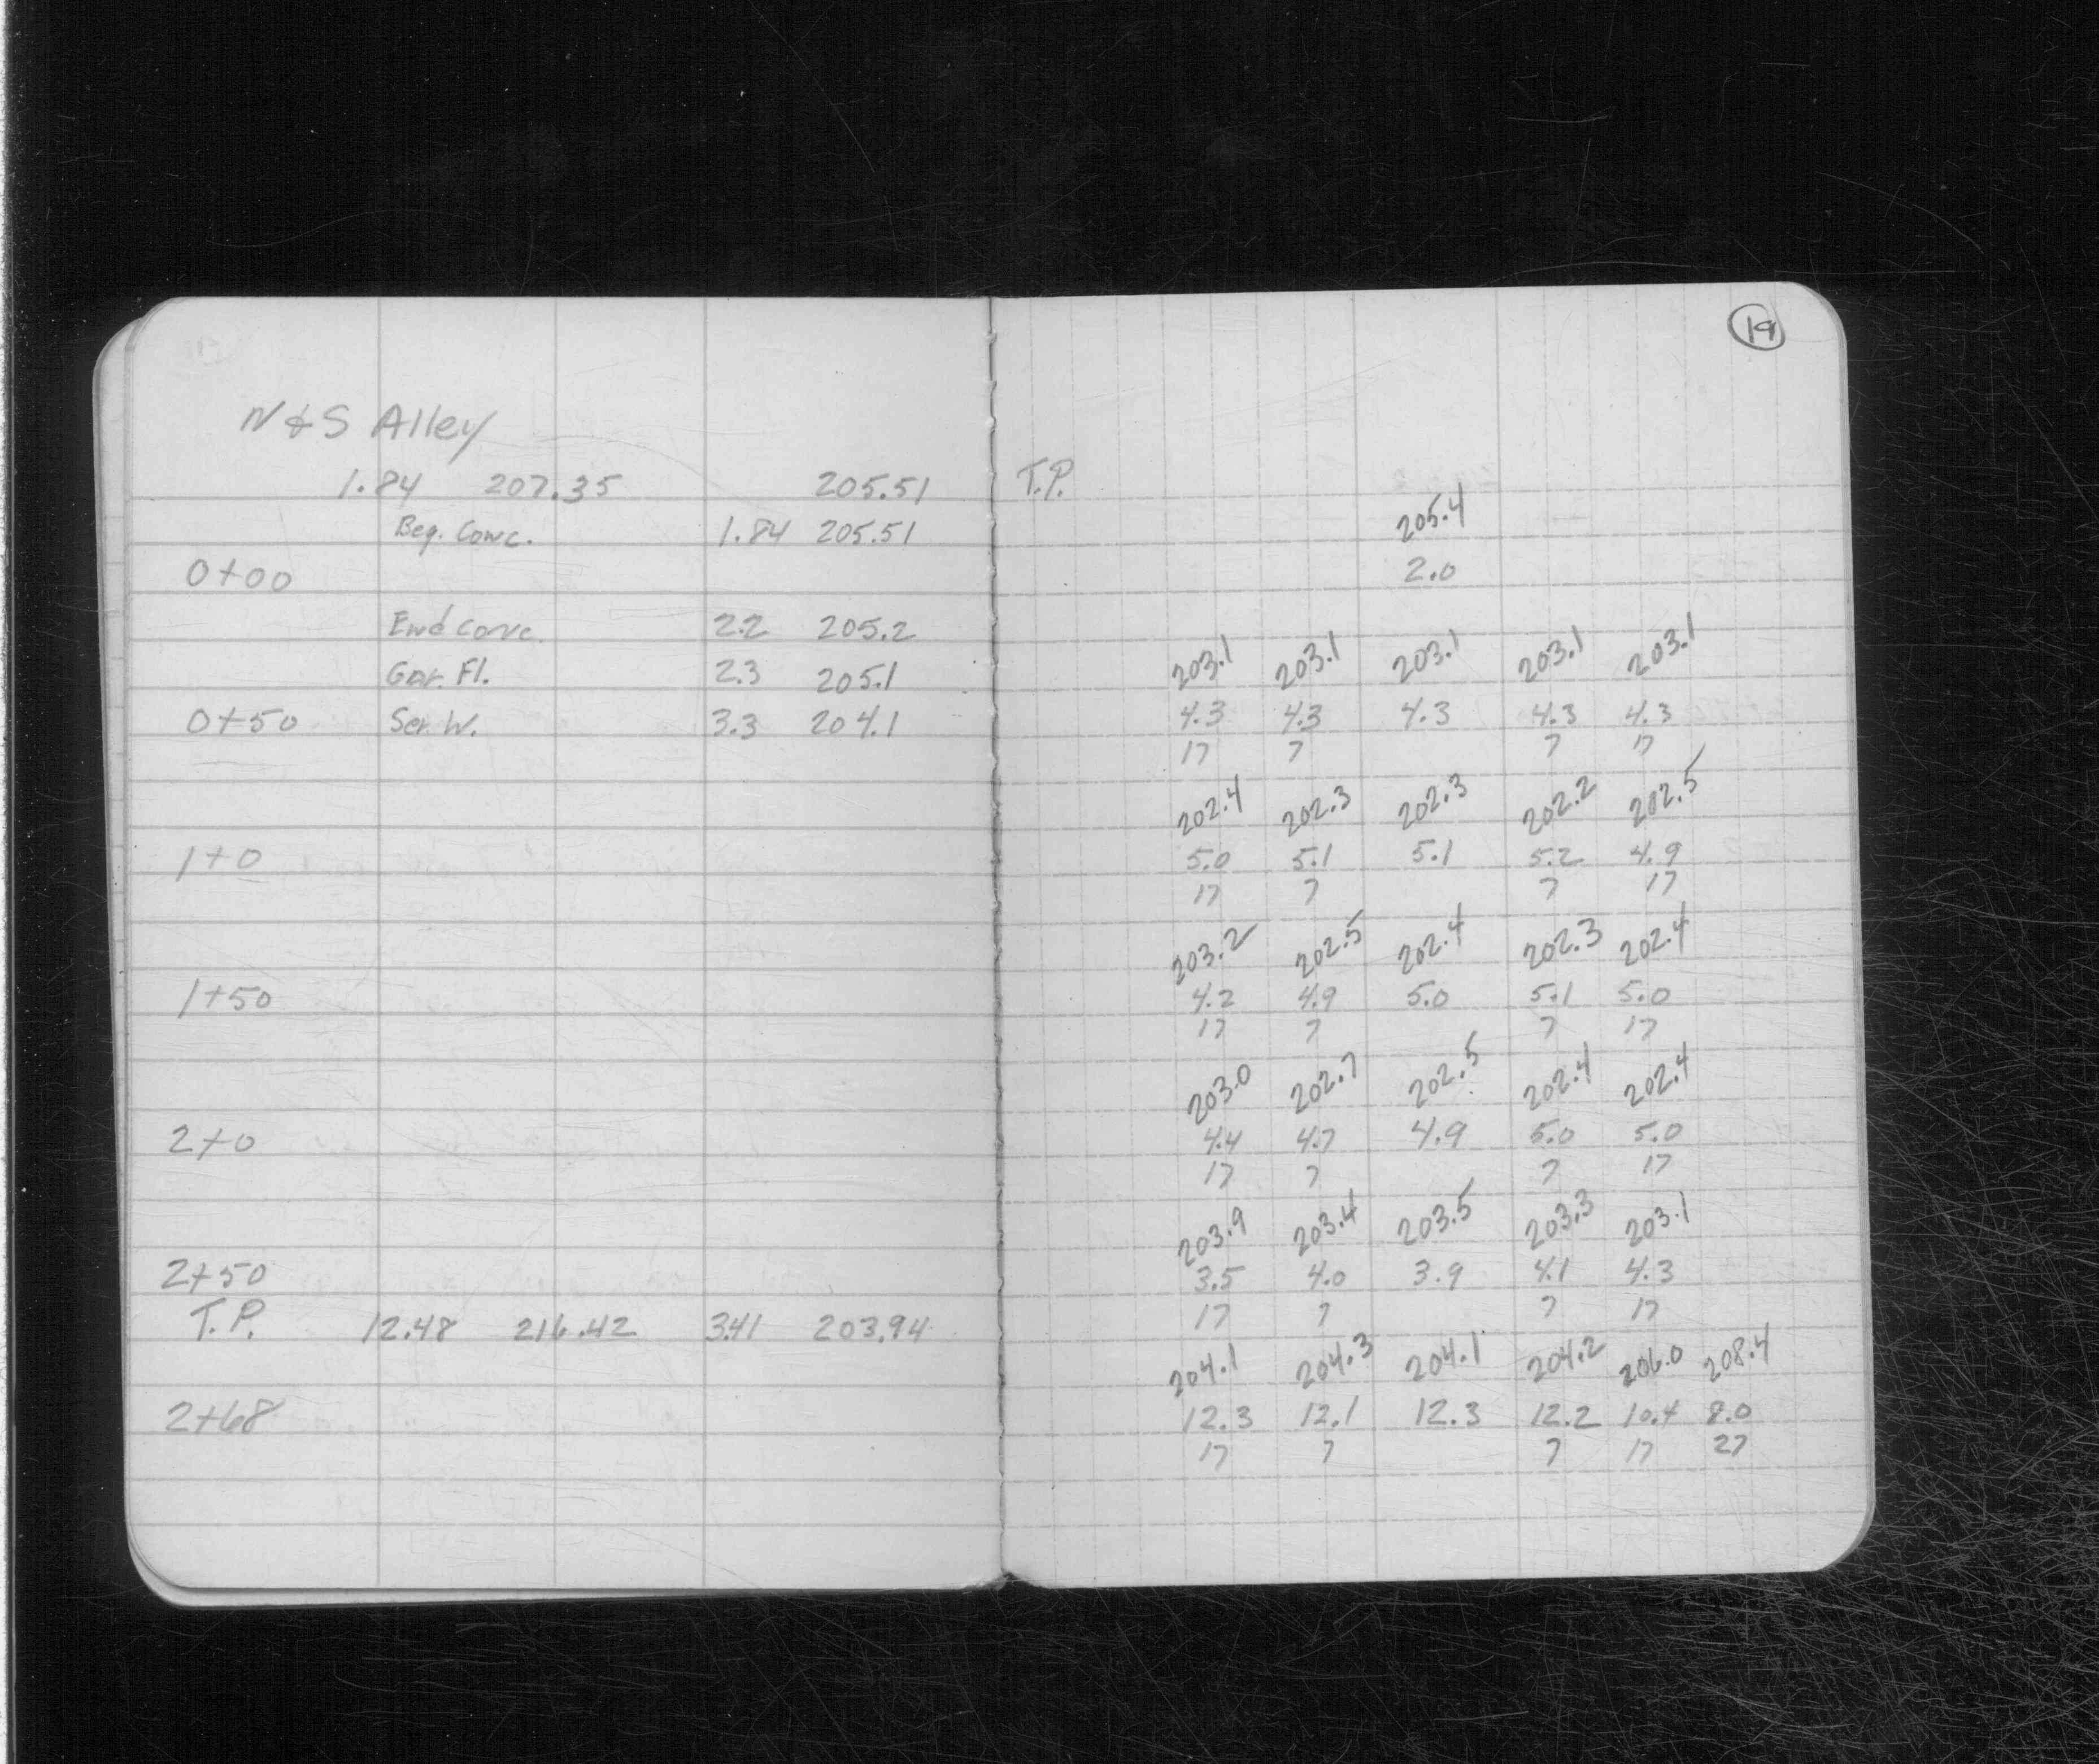 19
N & S Alley
1.84 207.35 205.51 T.P.
205.4
Beg. Conc. 1.84 205.51
0+00 2.0
End Conc. 2.2 205.2
203.1 203.1 203.1 203.1 203.1
Gar. Fl. 2.3 205.1
0+50 Ser. W. 3.3 204.1 4.3 4.3 4.3 4.3 4.3
17 7 7 17
202.4 202.3 202.3 202.2 202.5
1+0 5.0 5.1 5.1 5.2 4.9
17 7 7 17
203.2 202.5 202.4 202.3 202.4
1+50 4.2 4.9 5.0 5.1 5.0
17 7 7 17
203.0 202.7 202.5 202.4 202.4
2+0 4.4 4.7 4.9 5.0 5.0
17 7 7 17
203.9 203.4 203.5 203.3 203.1
2+50 3.5 4.0 3.9 4.1 4.3
17 7 7 17
T.P. 12.48 216.42 3.41 203.94
204.1 204.3 204.1 204.2 206.0 208.4
2+68 12.3 12.1 12.3 12.2 10.4 8.0
17 7 7 17 27